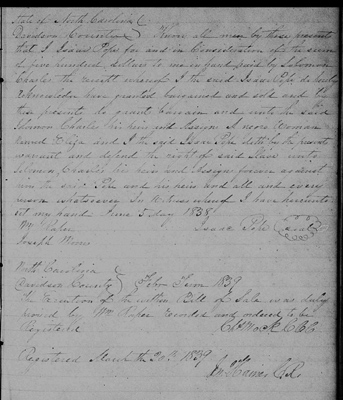 State of North Carolina
Davidson County Know all men by these presents
that I Isaac Pope for and in Consideration of the sum
of five hundred dollars to me in hand paid by Solomon
Charles the receipt whereof I the said Isaac Pope do hereby
acknowledge have granted bargained and sold and by
these presents do grant bargain and unto he said
Solomon Charles his heirs and Assigns a negro Woman
named Eliza and I the said Isaac Pope doth by these presents
warrant and defend the right of said Slave unto
Solomon Charles his heirs and Assigns forever against
me the said Pope and his heirs and all and every
person whatsoever In Witness whereof I have hereunto
set my hand June 5 day 1838
Wm Isaac Pope seal
Joseph
North Carolina
Davidson County Feb Term 1839
The Execution of the within Bill of Sale was duly
proved by Wm recorded and ordered to be
Registered
Registered March the 20th 1839